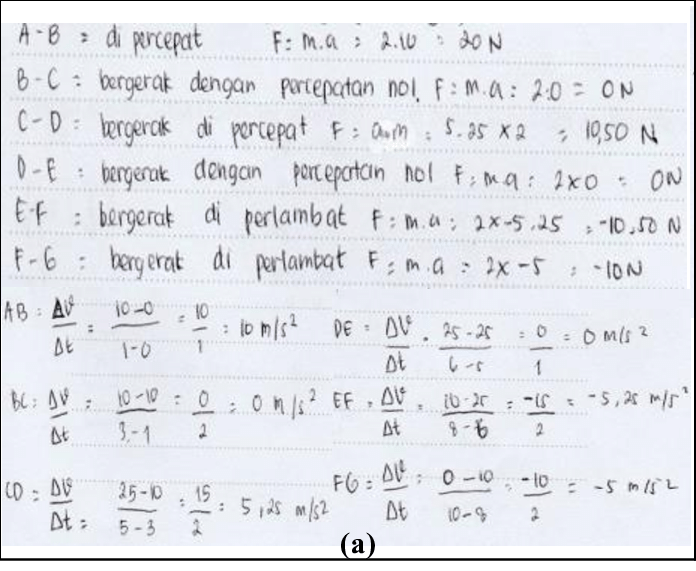 A-B = di percepat F: m.a = 2.10 = 20 N
B-C = bergerak dengan percepatan nol. F: m.a: 2.0 = 0 N
C-D : bergerak di percepat F = a.m = 5.25 x 2 = 10,50 N
D-E : bergerak dengan percepatan nol F: m.a : 2x0 = 0N
E-F : bergerak di perlambat F: m.a: 2x-5.25 = -10.50 N
F-G : bergerak di perlambat F: m.a = 2x -5 = -10N
AB : ΔV/Δt = 10-0/1-0 = 10/1 = 10 m/s²
DE = ΔV/Δt = 25-25/6-5 = 0/1 = 0 m/s²
BC: ΔV/Δt = 10-10/3-1 = 0/2 = 0 m/s²
EF = ΔV/Δt = 10-25/8-6 = -15/2 = -5,25 m/s²
CD = ΔV/Δt = 25-10/5-3 = 15/2 = 5,25 m/s2
FG = ΔV/Δt = 0-10/10-8 = -10/2 = -5 m/s2
(a)